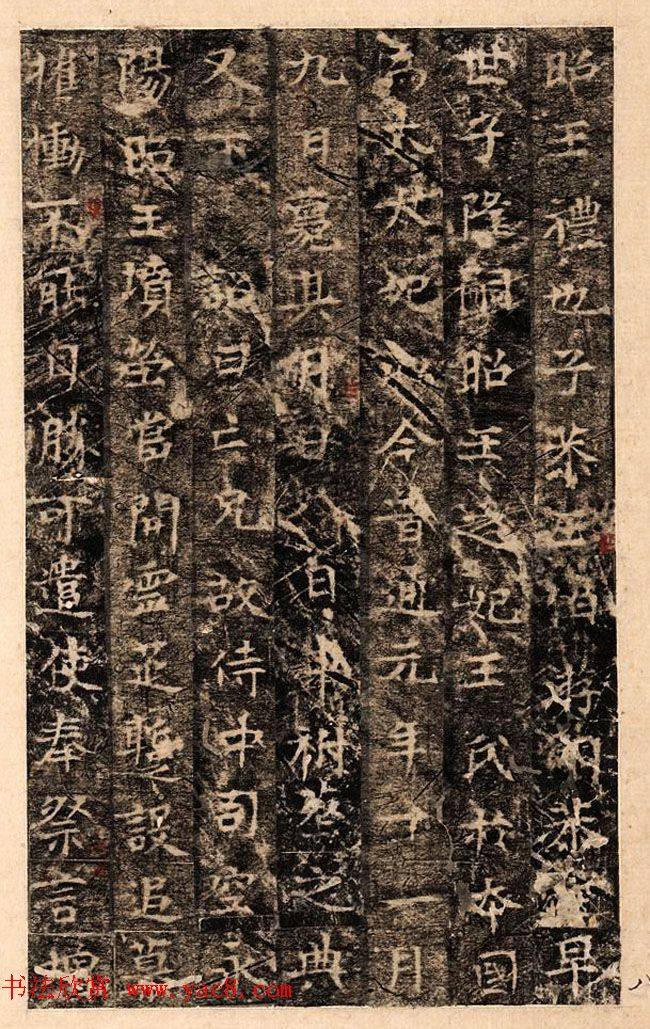 昭王禮也子恭游嗣恭早
世子隆嗣昭王之妃王氏於本國
為太妃今普通元年十一月
九日薨其明日外白求祔葬之典
又下詔曰亡兄故侍中司空永
陽昭王墳塋當開靈筵暫設追慕
摧慟不能自勝可遣使奉祭言增
八
书法欣赏 www.yac8.com